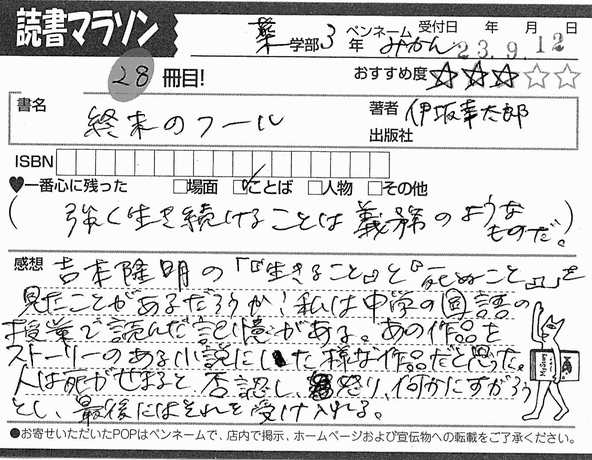 読書マラソン
薬学部3年 ペンネーム みかん 受付日 年 月 日 23.9.12
28冊目! おすすめ度 ★★★☆☆
書名 終末のフール 著者 伊坂幸太郎
出版社
ISBN
♥一番心に残った □場面 ☑ことば □人物 □その他
(強く生き続けることは義務のようなものだ。)
感想 吉本隆明の「『生きること』と『死ぬこと』」を
見たことがあるだろうか!私は中学の国語の
授業で読んだ記憶がある。あの作品を
ストーリーのある小説にした様な作品だと思った。
人は死がせまると否認し、怒り、何かにすがろう
とし、最後にはそれを受け入れる。
●お寄せいただいたPOPはペンネームで、店内で掲示、ホームページおよび宣伝物への転載をご了承ください。